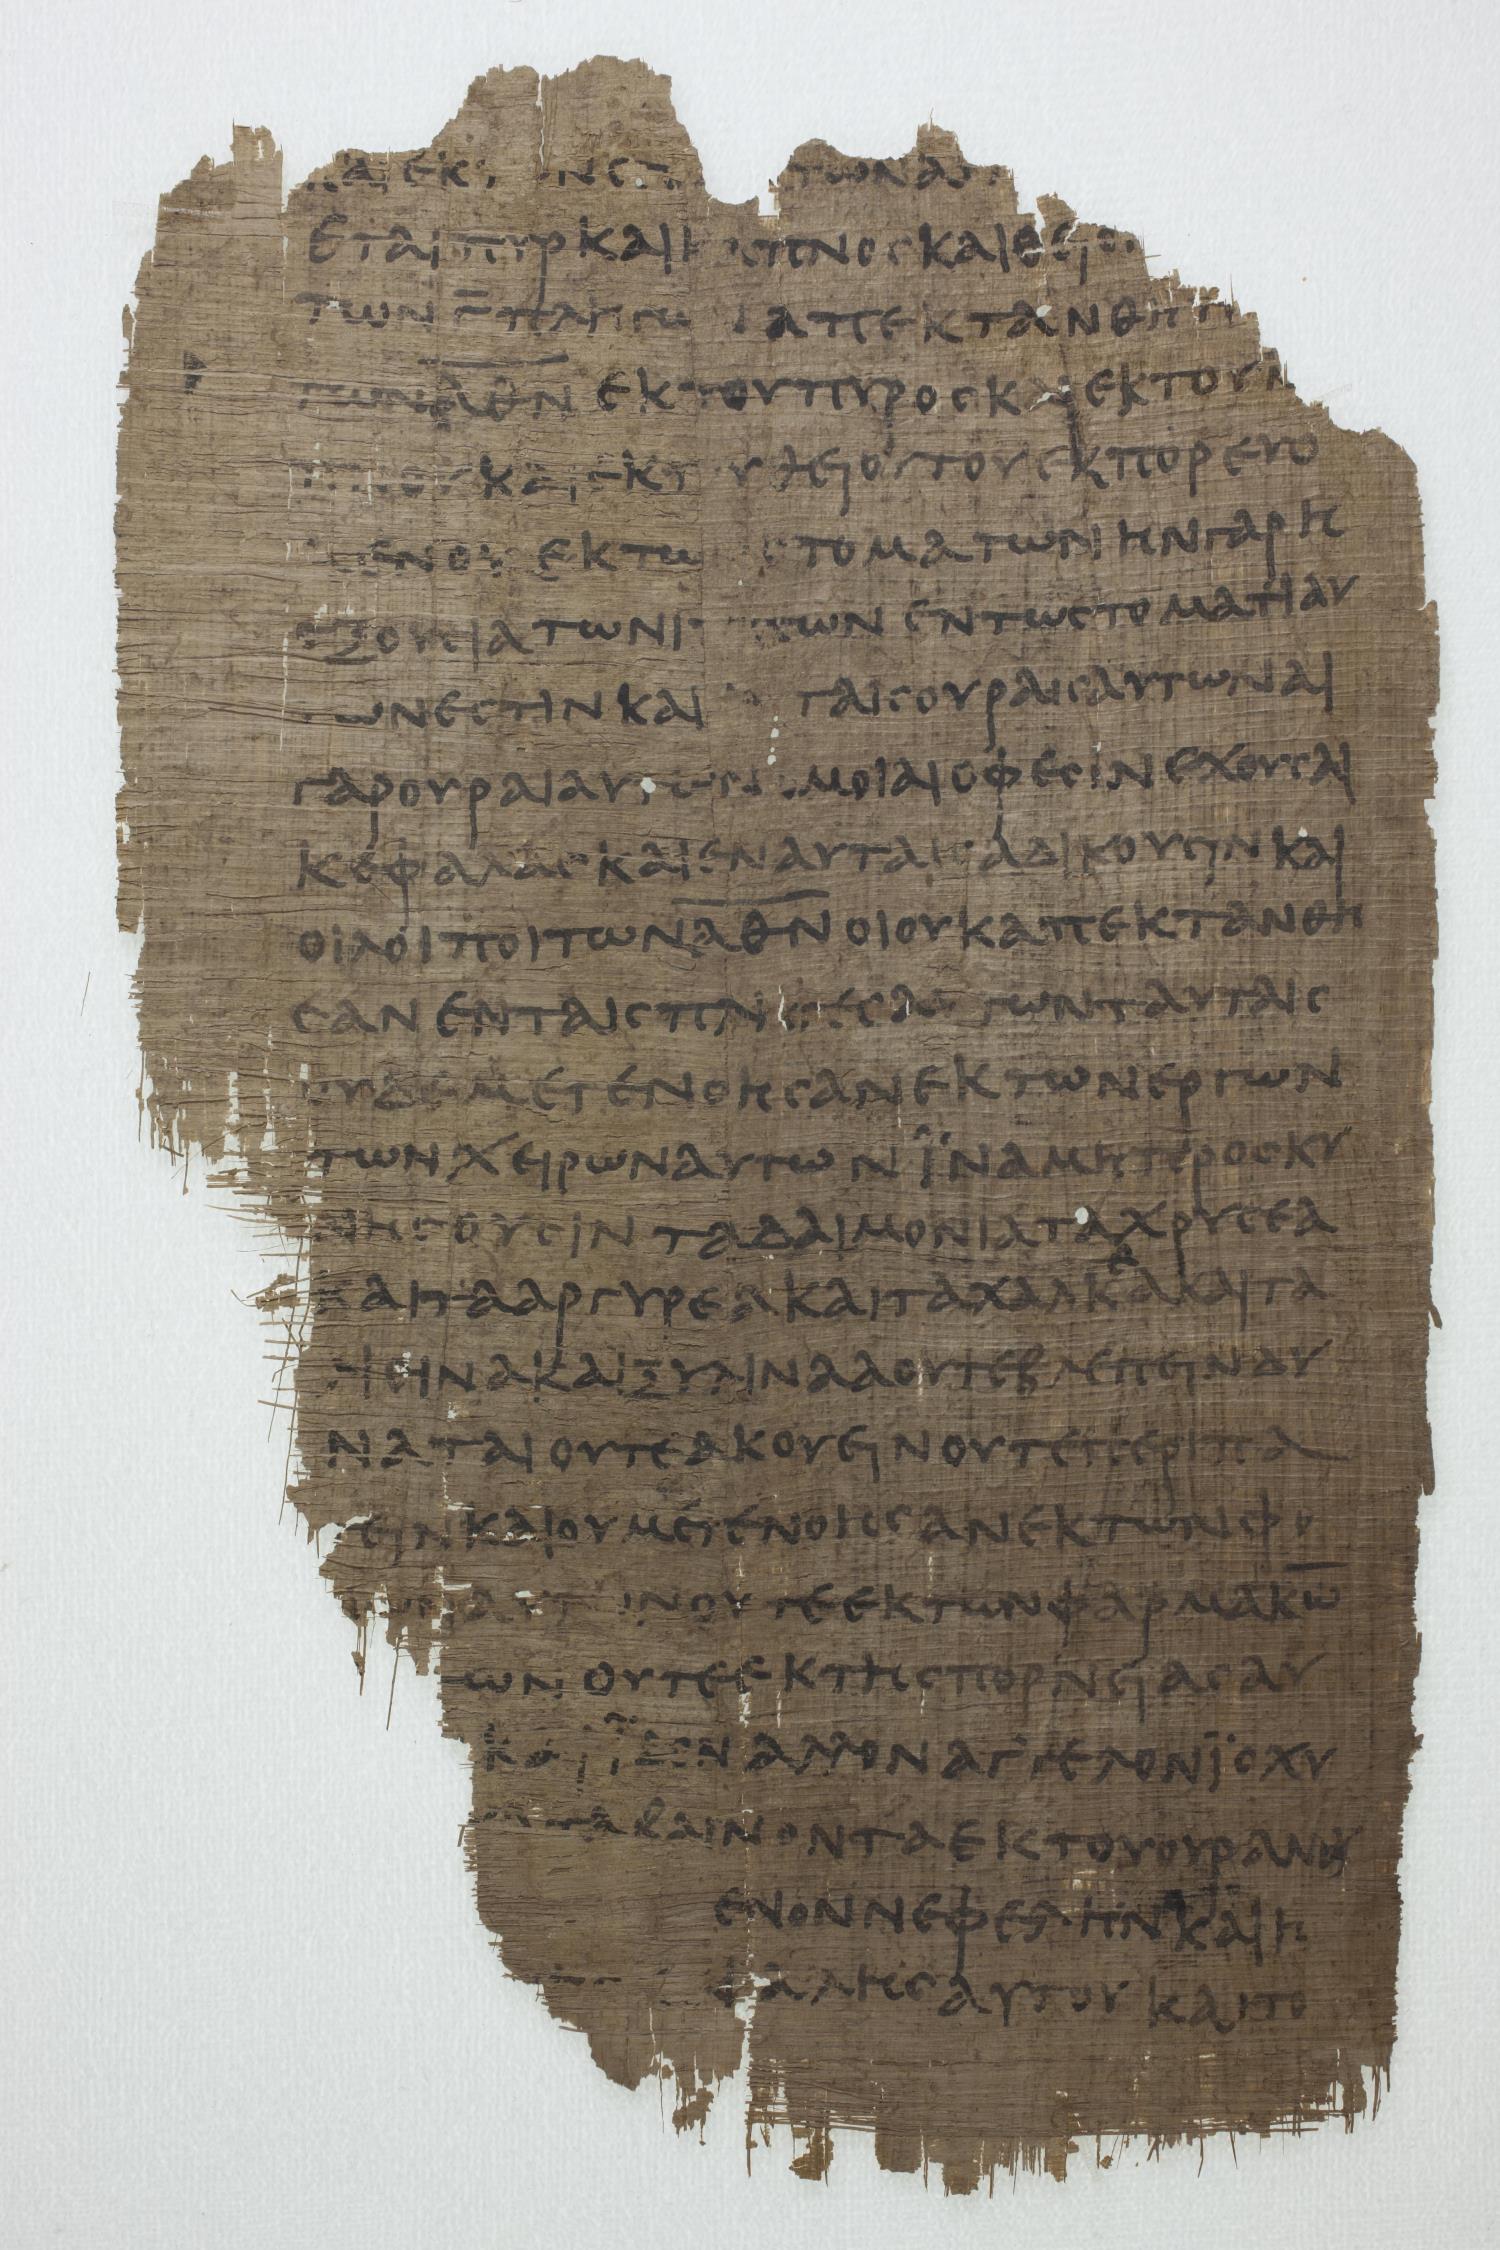 και εκ των στ των αυ
εται πυρ και καπνος και θειο
των γ πληγων απεκτανθη
των αθν εκ του πυρος και εκ του κ
που και εκ του θειου του εκπορευο
μενου εκ των στοματων ην γαρ η
εξουσια των ι ππων εν τω στοματι αυ
των εστιν και ταις ουραις αυτων αι
γαρ ουραι αυτων ομοιαι οφεσιν εχουσαι
κεφαλας και εν αυταις αδικουσιν και
οι λοιποι των αθν οι ουκ απεκτανθη
σαν εν ταις πληγες αυτων ταυταις
ουδε μετενοησαν εκ των εργων
των χειρων αυτων ϊνα μη προσκυ
νησουσιν τα δαιμονια τα χρυσεα
και τα αργυρεα και τα χαλκεα και τα
λιθινα και ξυλινα α ουτε βλεπειν δυ
ναται ουτε ακουειν ουτε περιπα
τειν και ου μετενοησαν εκ των φο
νων αυτων ουτε εκ των φαρμακω̅
ων ουτε εκ της πορνειας αυ
και ϊδον αλλον αγγελον ϊσχυ
καταβαινοντα εκ του ουρανου
ενον νεφελην και η
φαλης αυτου και το